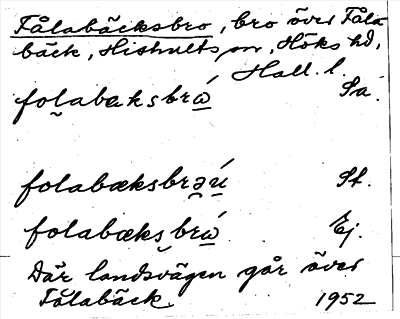 Fålabäcksbro, bro över Fåla
bäck, Hishults sn, Höks hd,
Hall. l.
folabaksbrá̲ Sá.
folabæksbrə̯ú̯ St.
folabæksbrá̲ Ej.
Där landsvägen går över
Fålabäck 1952